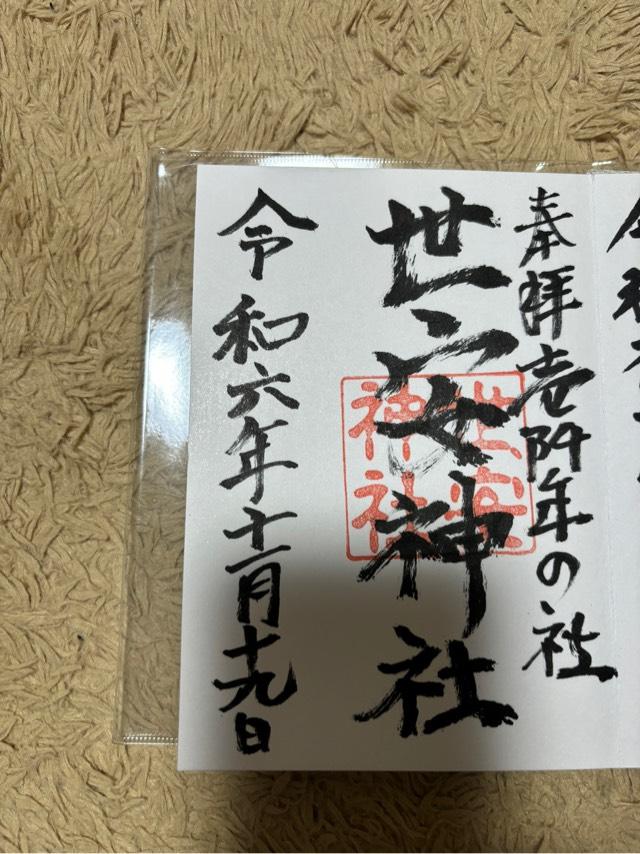 奉拝 壱阡年の社
世安神社
世安神社
令和六年十一月十九日